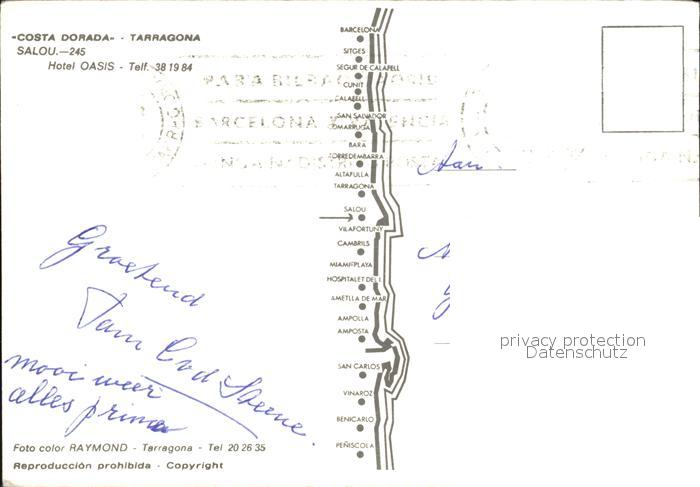 "COSTA DORADA" - TARRAGONA
SALOU.—245
Hotel OASIS - Telf. 38 19 84
PARA BILBAO
BARCELONA
BARCELONA
SITGES
SEGUR DE CALAFELL
CUNIT
CALAFELL
SAN SALVADOR
COMARRUGA
BARA
TORREDEMBARRA
ALTAFULLA
TARRAGONA
SALOU
VILAFORTUNY
CAMBRILS
MIAMI-PLAYA
HOSPITALET DEL I.
AMETLLA DE MAR
AMPOLLA
AMPOSTA
SAN CARLOS
VINAROZ
BENICARLO
PEÑISCOLA
Aan
Groetend
mooi weer
alles prima
privacy protection
Datenschutz
Foto color RAYMOND - Tarragona - Tel 20 26 35
Reproducción prohibida - Copyright